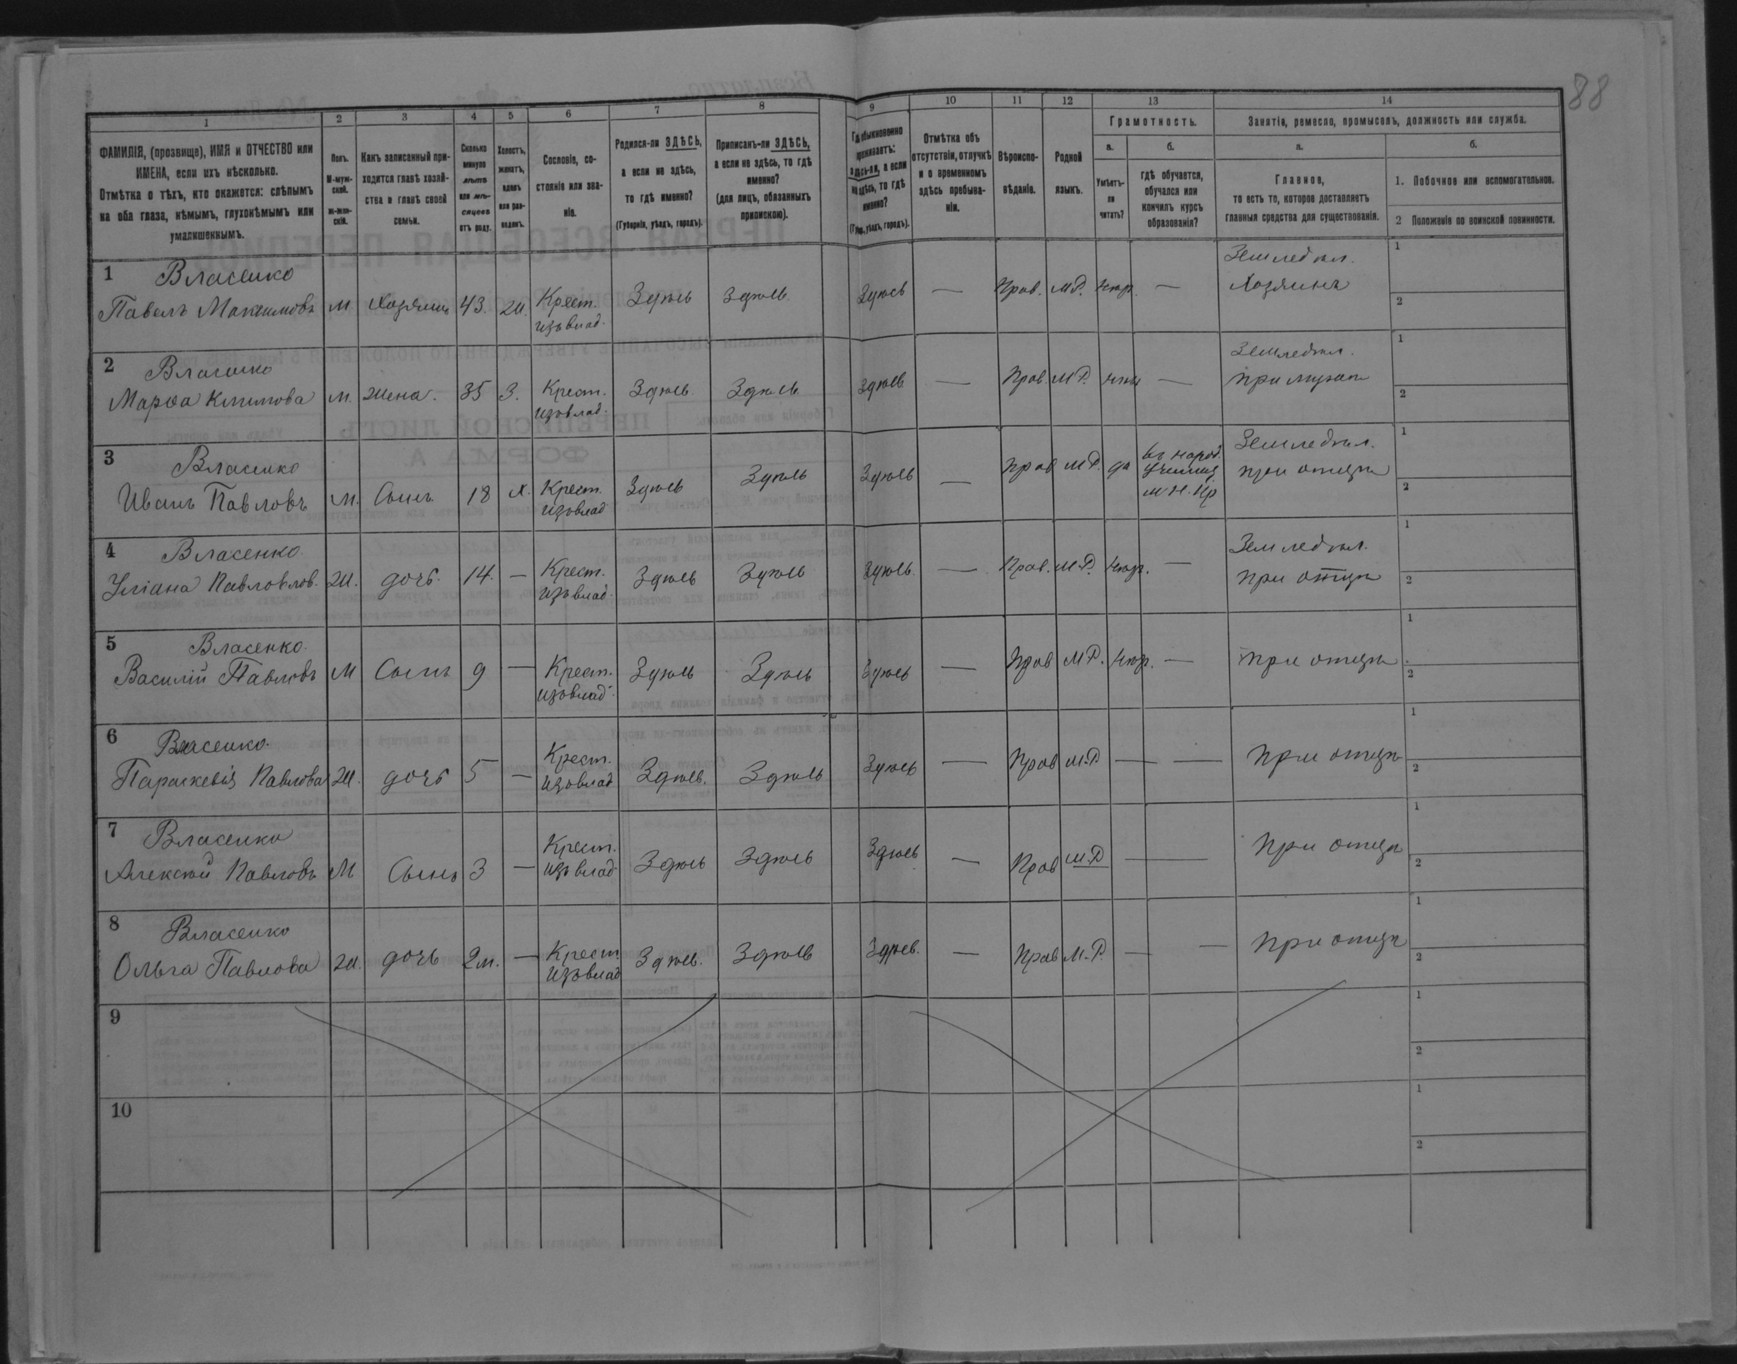 88
1 2 3 4 5 6 7 8 9 10 11 12 13 14
ФАМИЛІЯ, (прозвище), ИМЯ и ОТЧЕСТВО или
ИМЕНА, если ихъ нѣсколько.
Отмѣтка о тѣхъ, кто окажется: слѣпымъ
на оба глаза, нѣмымъ, глухонѣмымъ или
умалишеннымъ.
Полъ.
М-муж-
ской.
Ж-жен-
скій.
Какъ записанный при-
ходится главѣ хозяй-
ства и главѣ своей
семьи.
Сколько
минуло
лѣтъ
или мѣ-
сяцевъ
отъ роду.
Холостъ,
женатъ,
вдовъ
или раз-
веденъ.
Сословіе, со-
стояніе или зва-
ніе.
Родился-ли ЗДѢСЬ,
а если не здѣсь,
то гдѣ именно?
(Губернія, уѣздъ, городъ).
Приписанъ-ли ЗДѢСЬ,
а если не здѣсь, то гдѣ
именно?
(для лицъ, обязанныхъ
припискою).
Гдѣ обыкновенно
проживаетъ:
здѣсь-ли, а если
не здѣсь, то гдѣ
именно?
(Губ., уѣздъ, городъ).
Отмѣтка объ
отсутствіи, отлучкѣ
и о временномъ
здѣсь пребыва-
ніи.
Вѣроиспо-
вѣданіе.
Родной
языкъ.
Грамотность.
а.
Умѣетъ-
ли
читать?
б.
гдѣ обучается,
обучался или
кончилъ курсъ
образованія?
Занятіе, ремесло, промыселъ, должность или служба.
а.
Главное,
то есть то, которое доставляетъ
главныя средства для существованія.
б.
1. Побочное или вспомогательное.
2 Положеніе по воинской повинности.
1 Власенко
Павелъ Максимовъ м Хозяинъ 43. Ж. Крест. изъ влад. Здѣсь Здѣсь Здѣсь — Прав. М.Р. — Земледѣл. Хозяинъ 1 2
2 Власенко
Марѳа Климова м. жена. 35 З. Крест. изъ влад. Здѣсь Здѣсь Здѣсь — Прав. М.Р. — Земледѣл. при мужѣ 1 2
3 Власенко
Иванъ Павловъ М. Сынъ 18 х. Крест. изъ влад Здѣсь Здѣсь Здѣсь — Прав М.Р. да въ народ. училищ. М.Н.Пр Земледѣл. при отцѣ 1 2
4 Власенко
Уліана Павловлов. Ж. дочь. 14. — Крест. изъ влад Здѣсь Здѣсь Здѣсь — Прав. М.Р. — Земледѣл. при отцѣ 1 2
5 Власенко
Василій Павловъ М Сынъ 9 — Крест. изъ влад. Здѣсь Здѣсь Здѣсь — Прав М.Р. — при отцѣ 1 2
6 Власенко
Параскевія Павлова Ж. дочь 5 — Крест. изъ влад Здѣсь. Здѣсь Здѣсь — Прав М.Р — — При отцѣ 1 2
7 Власенко
Алексѣй Павловъ М Сынъ 3 — Крест. изъ влад Здѣсь Здѣсь Здѣсь — Прав М.Р — — При отцѣ 1 2
8 Власенко
Ольга Павлова Ж. дочь 2 м. — Крест изъ влад Здѣсь. Здѣсь Здѣсь. — Прав М.Р. — — При отцѣ 1 2
9 1 2
10 1 2